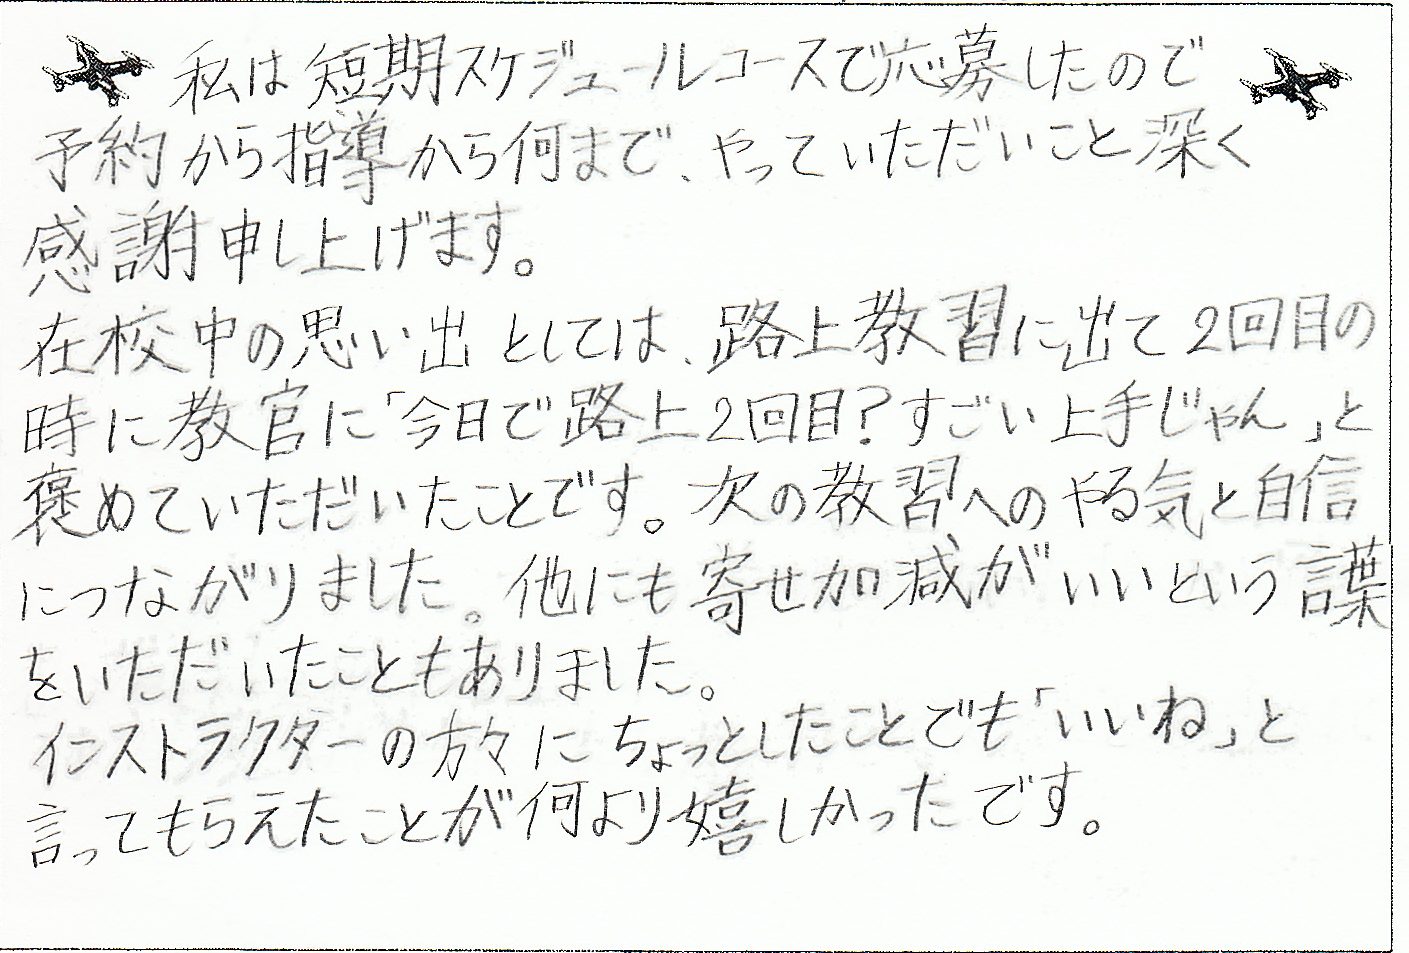 私は短期スケジュールコースで応募したので
予約から指導から何まで、やっていただいこと深く
感謝申し上げます。
在校中の思い出としては、路上教習に出て2回目の
時に教官に「今日で路上2回目?すごい上手じゃん」と
褒めていただいたことです。次の教習へのやる気と自信
につながりました。他にも寄せ加減がいいという言葉
をいただいたこともありました。
インストラクターの方々にちょっとしたことでも「いいね」と
言ってもらえたことが何より嬉しかったです。